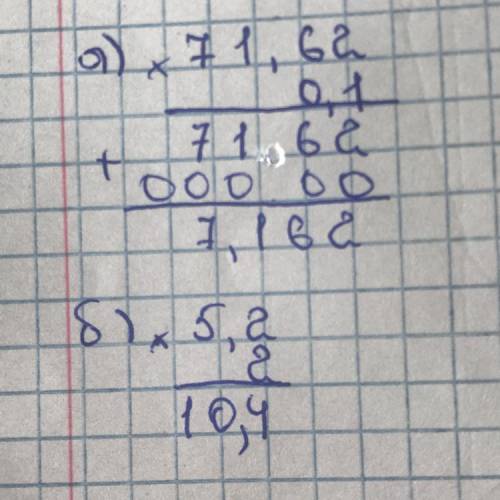 а) × 71,62
0,1
+ 7162
00000
7,162
б) × 5,2
2
10,4